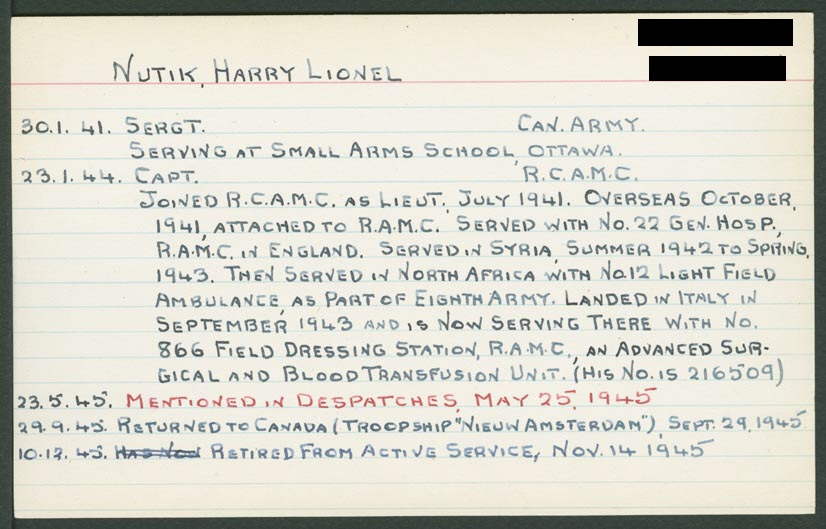 NUTIK, HARRY LIONEL
30.1. 41. SERGT. CAN. ARMY.
SERVING AT SMALL ARMS SCHOOL, OTTAWA.
23.1.44. CAPT. R.C.A.M.C.
JOINED R.C.A.M.C. AS LIEUT, JULY 1941. OVERSEAS OCTOBER,
1941, ATTACHED TO R.A.M.C. SERVED WITH NO. 22 GEN. HOSP.,
R.A.M.C. IN ENGLAND. SERVED IN SYRIA, SUMMER 1942 TO SPRING,
1943. THEN SERVED IN NORTH AFRICA WITH NO.12 LIGHT FIELD
AMBULANCE, AS PART OF EIGHTH ARMY. LANDED IN ITALY IN
SEPTEMBER 1943 AND IS NOW SERVING THERE WITH NO.
866 FIELD DRESSING STATION, R.A.M.C., AN ADVANCED SUR-
GICAL AND BLOOD TRANSFUSION UNIT. (HIS NO. IS 216509)
23.5.45. MENTIONED IN DESPATCHES, MAY 25, 1945
29.9.45. RETURNED TO CANADA (TROOPSHIP "NIEUW AMSTERDAM"), SEPT. 29, 1945
10.12.45. HAS NOW RETIRED FROM ACTIVE SERVICE, NOV. 14 1945